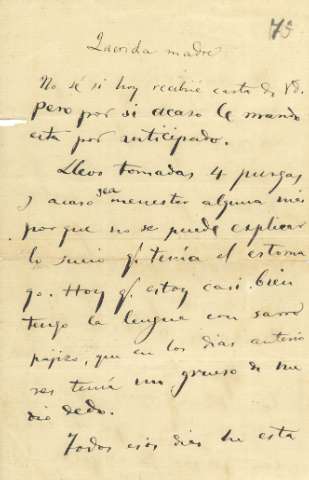 75
Querida madre
No sé si hoy recibiré carta de Vd.
pero por si acaso le mando
esta por anticipado.
Llevo tomadas 4 purgas
y acaso sea menester alguna más
porque no se puede explicar
lo sucio q. tenía el estoma
go. Hoy q. estoy casi bien
tengo la lengua con sarro
pajizo, que en los dias anterio
res tenía un grueso de me
dio dedo.
Todos esos dias he esta